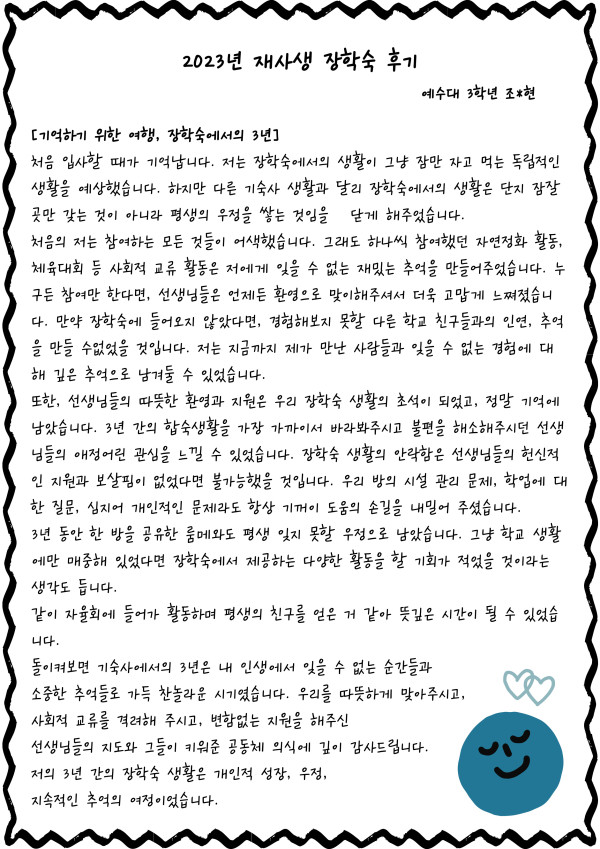 2023년 재사생 장학숙 후기
예수대 3학년 조*현
[기억하기 위한 여행, 장학숙에서의 3년]
처음 입사할 때가 기억납니다. 저는 장학숙에서의 생활이 그냥 잠만 자고 먹는 독립적인
생활을 예상했습니다. 하지만 다른 기숙사 생활과 달리 장학숙에서의 생활은 단지 잠잘
곳만 갖는 것이 아니라 평생의 우정을 쌓는 것임을 닫게 해주었습니다.
처음의 저는 참여하는 모든 것들이 어색했습니다. 그래도 하나씩 참여했던 자연정화 활동,
체육대회 등 사회적 교류 활동은 저에게 잊을 수 없는 재밌는 추억을 만들어주었습니다. 누
구든 참여만 한다면, 선생님들은 언제든 환영으로 맞이해주셔서 더욱 고맙게 느껴졌습니
다. 만약 장학숙에 들어오지 않았다면, 경험해보지 못할 다른 학교 친구들과의 인연, 추억
을 만들 수없었을 것입니다. 저는 지금까지 제가 만난 사람들과 잊을 수 없는 경험에 대
해 깊은 추억으로 남겨둘 수 있었습니다.
또한, 선생님들의 따뜻한 환영과 지원은 우리 장학숙 생활의 초석이 되었고, 정말 기억에
남았습니다. 3년 간의 합숙생활을 가장 가까이서 바라봐주시고 불편을 해소해주시던 선생
님들의 애정어린 관심을 느낄 수 있었습니다. 장학숙 생활의 안락함은 선생님들의 헌신적
인 지원과 보살핌이 없었다면 불가능했을 것입니다. 우리 방의 시설 관리 문제, 학업에 대
한 질문, 심지어 개인적인 문제라도 항상 기꺼이 도움의 손길을 내밀어 주셨습니다.
3년 동안 한 방을 공유한 룸메와도 평생 잊지 못할 우정으로 남았습니다. 그냥 학교 생활
에만 매중해 있었다면 장학숙에서 제공하는 다양한 활동을 할 기회가 적었을 것이라는
생각도 듭니다.
같이 자율회에 들어가 활동하며 평생의 친구를 얻은 거 같아 뜻깊은 시간이 될 수 있었습
니다.
돌이켜보면 기숙사에서의 3년은 내 인생에서 잊을 수 없는 순간들과
소중한 추억들로 가득 찬놀라운 시기였습니다. 우리를 따뜻하게 맞아주시고,
사회적 교류를 격려해 주시고, 변함없는 지원을 해주신
선생님들의 지도와 그들이 키워준 공동체 의식에 깊이 감사드립니다.
저의 3년 간의 장학숙 생활은 개인적 성장, 우정,
지속적인 추억의 여정이었습니다.